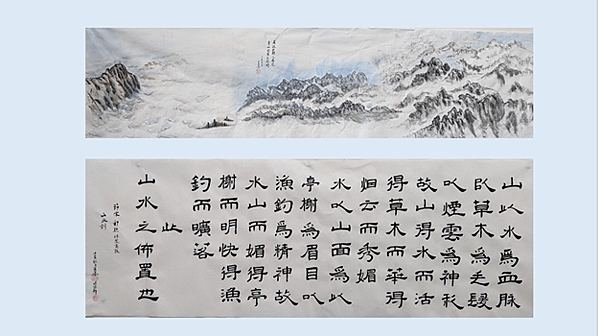 山以水爲血脈
以草木爲毛髮
以煙雲爲神彩
故山得水而活
得草木而華得
烟云而秀媚
水以山面爲以
亭榭爲眉目以
漁釣爲精神故
水山而媚得亭
榭而明快得漁
釣而曠落
此
山水之佈置也